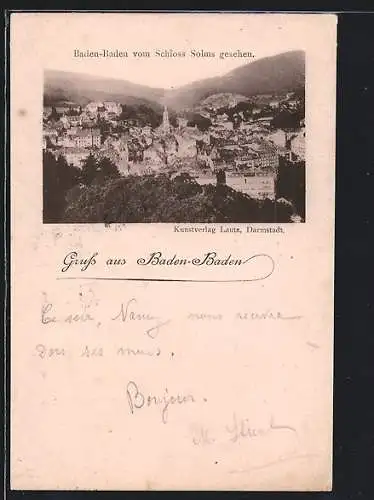 Baden-Baden vom Schloss Solms gesehen.
Kunstverlag Lautz, Darmstadt.
Gruß aus Baden-Baden
Ce soir, Nancy nous recevra
dans ses murs.
Bonjour.